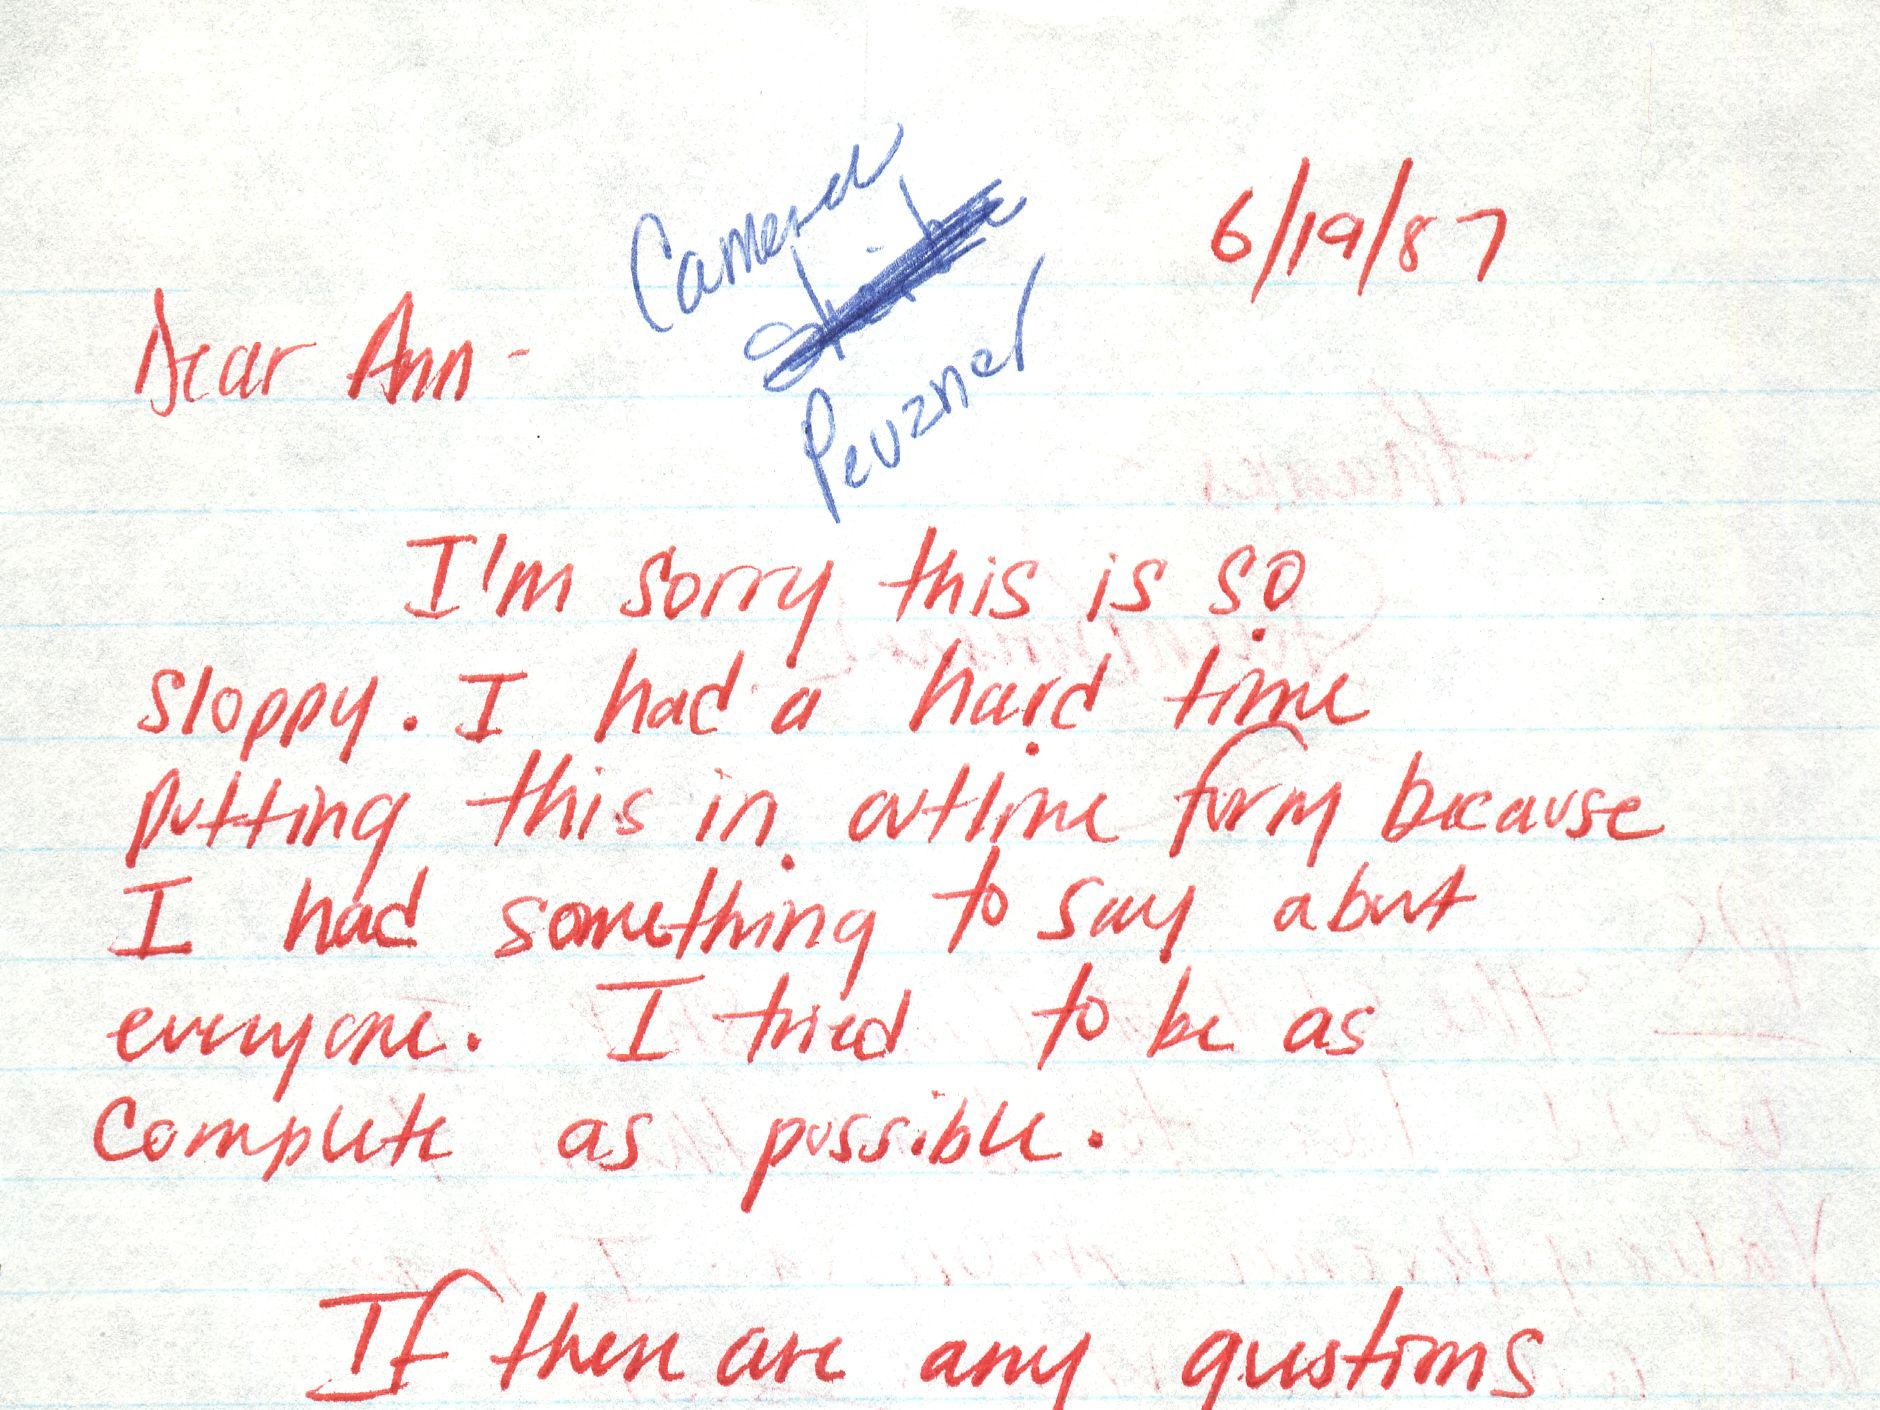 6/19/87
Camera
Peuzner
Dear Ann -
I'm sorry this is so
sloppy. I had a hard time
putting this in outline form because
I had something to say about
everyone. I tried to be as
complete as possible.
If there are any questions